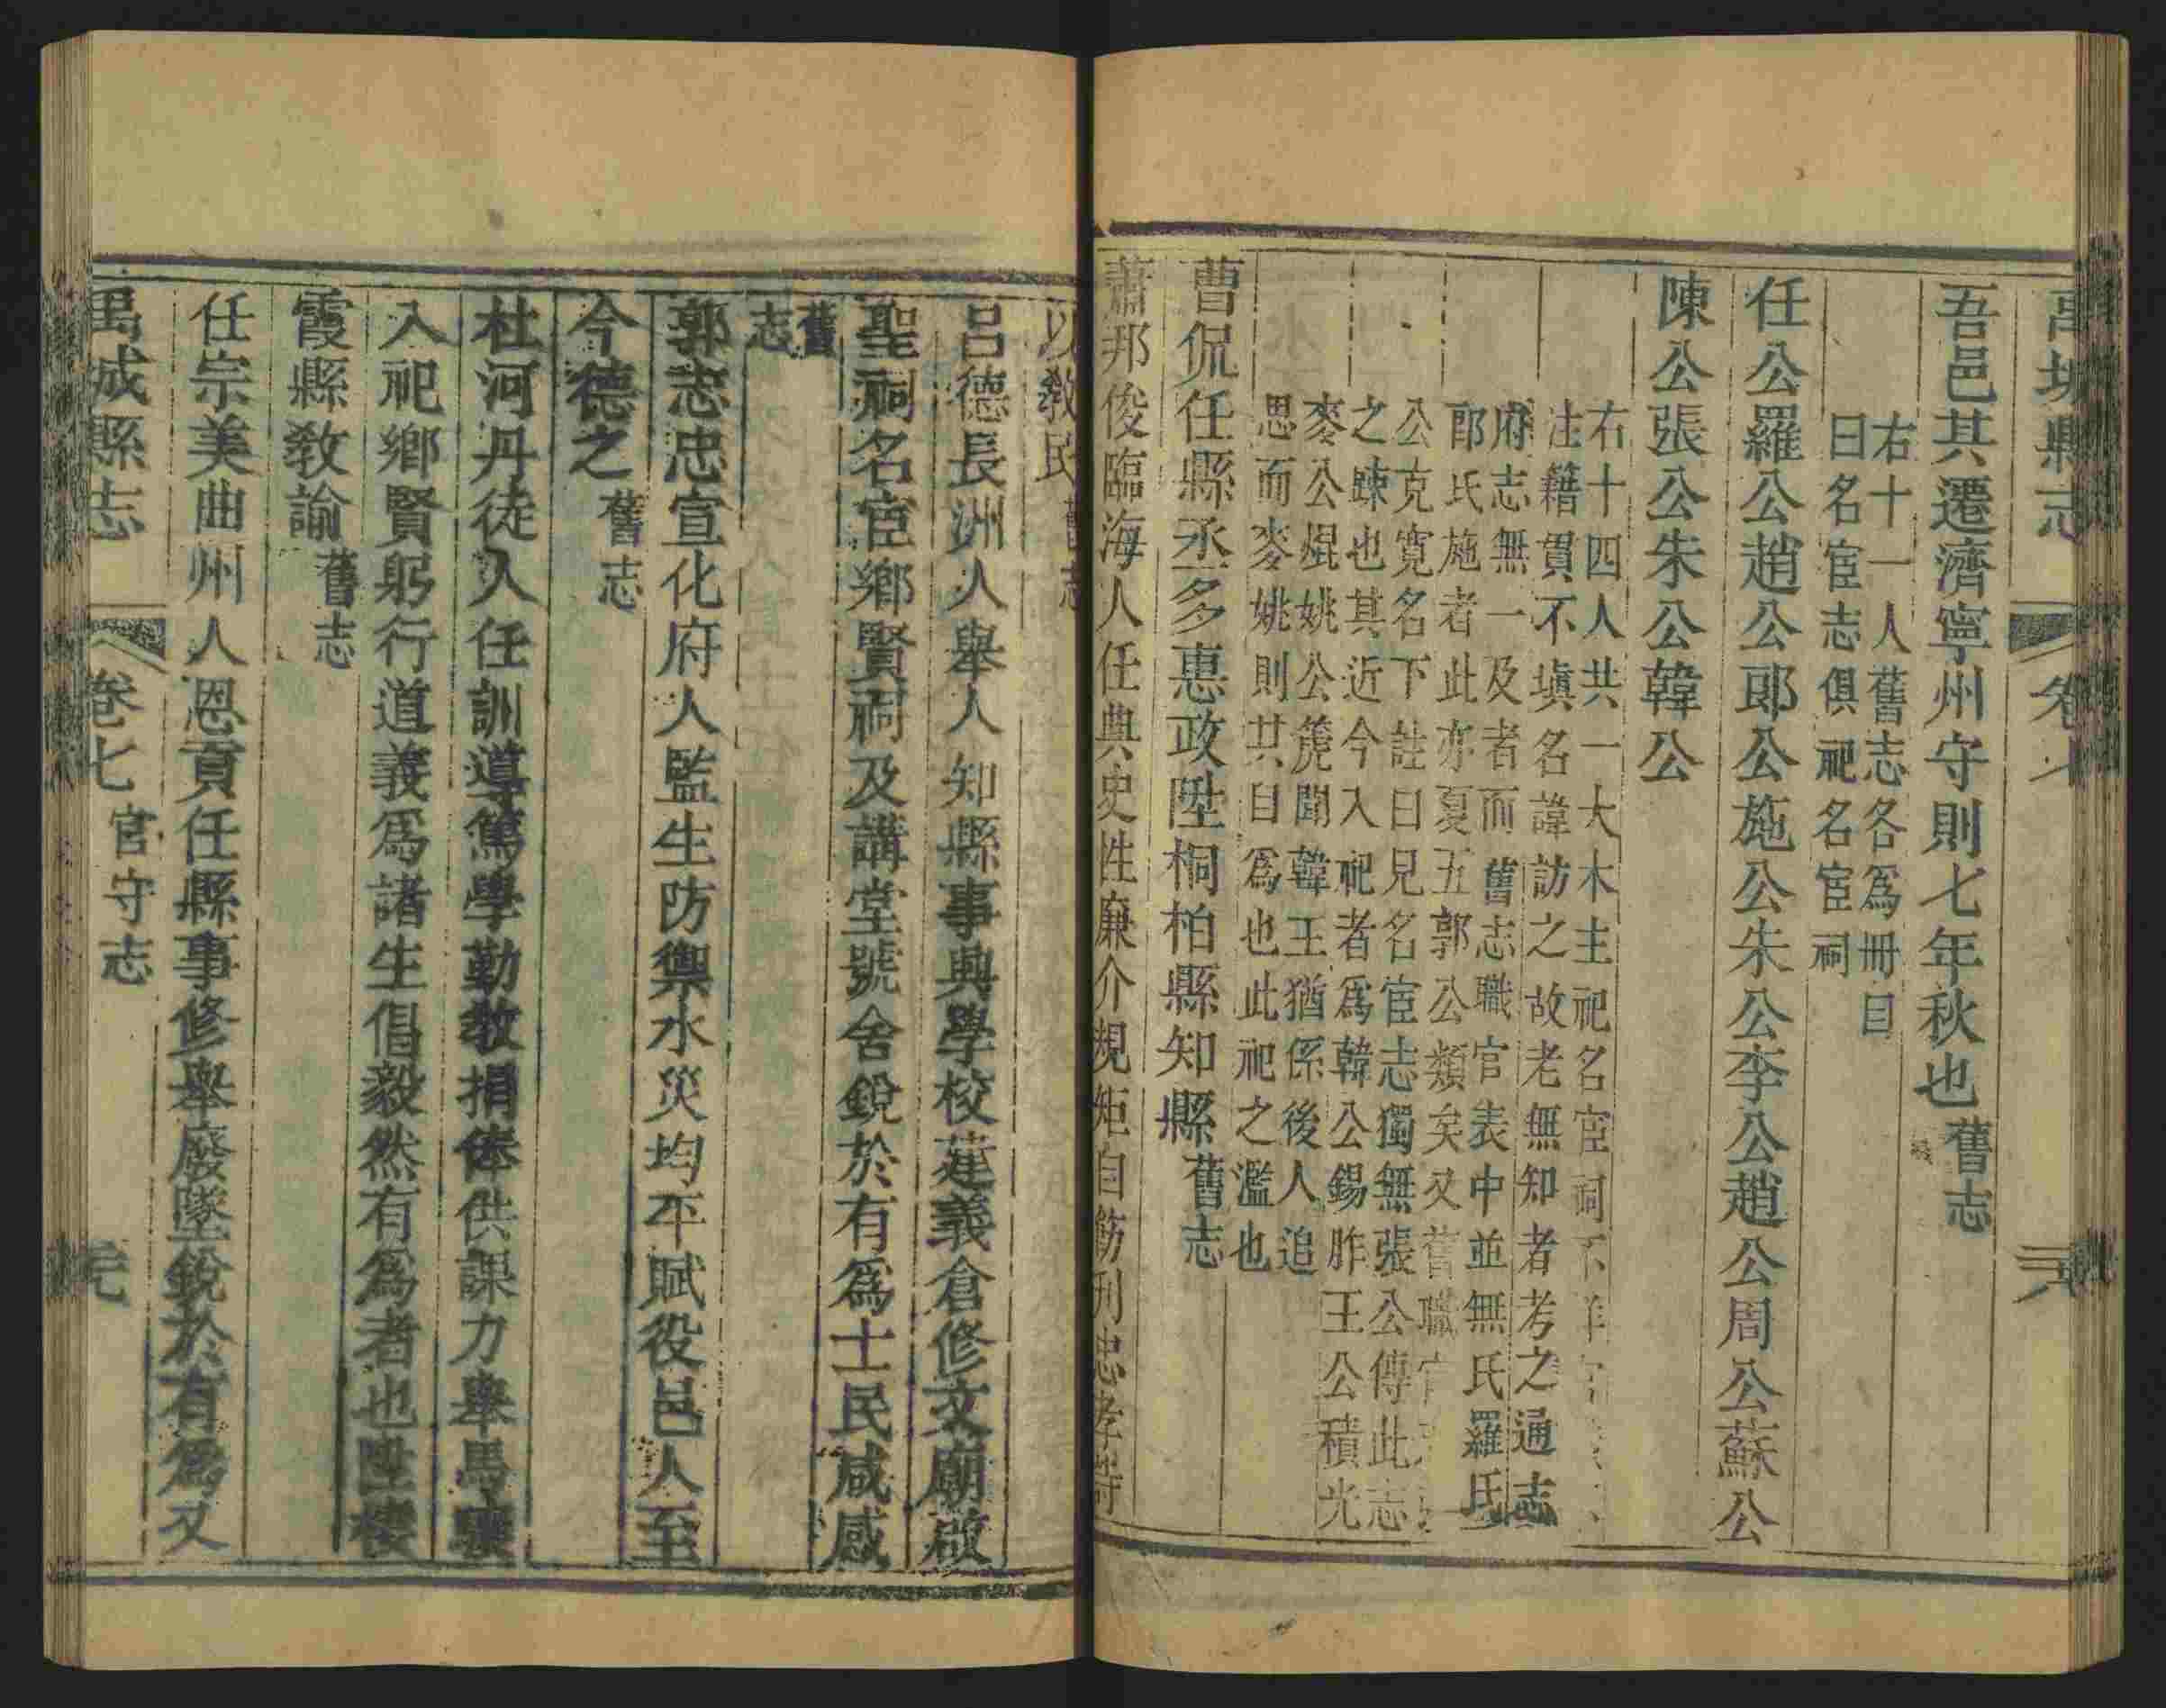 禹城縣志
卷七
吾邑其遷濟寧州守則七年秋也舊志
右十一人舊志各為冊目
曰名宦志俱祀名宦祠
任公羅公趙公郎公施公朱公李公趙公周公蘇公
陳公張公朱公韓公
右十四人共一大木主祀名宦祠不詳
注籍貫不塡名諱訪之故老無知者考之通志
府志無一及者而舊志職官表中並無氏羅氏
郎氏施者此亦夏五郭公類矣又舊職官
公克寛名下註曰見名宦志獨無張公傳此志
之踈也其近今入祀者為韓公錫胙王公積光
麥公焜姚公篪聞韓王猶係後人追
思而麥姚則其自為也此祀之濫也
曹侃任縣丞多惠政陞桐柏縣知縣舊志
蕭邦俊臨海人任典史性廉介規矩自飭刊忠孝詩
以敎民舊志
呂德長洲人舉人知縣事興學校建義倉修文廟啟
聖祠名宦鄉賢祠及講堂號舍銳於有為士民咸感
舊志
郭志忠宣化府人監生防禦水災均平賦役邑人至
今德之舊志
杜河丹徒人任訓導篤學勤敎捐俸供課力舉馬驤
入祀鄉賢躬行道義為諸生倡毅然有為者也陞棲
霞縣敎諭舊志
任宗美曲州人恩貢任縣事修舉廢墜銳於有為又
禹城縣志
卷七 官守志